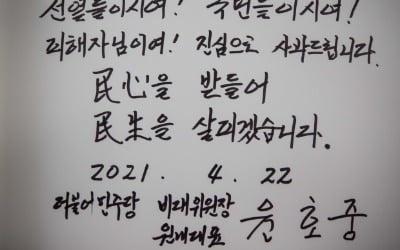 선열들이시여! 국민들이시여!
피해자님이여! 진심으로 사과드립니다.
民心을 받들어
民生을 살피겠습니다.
2021. 4. 22
더불어민주당 비대위원장 윤호중
원내대표